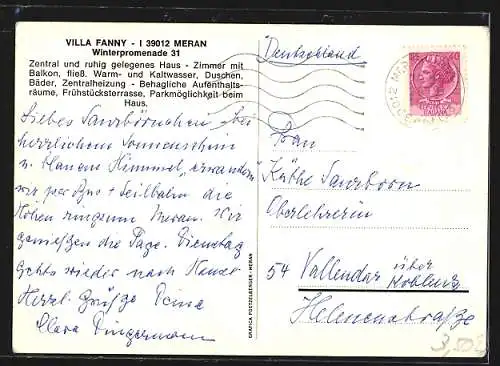 VILLA FANNY - I 39012 MERAN
Winterpromenade 31
Zentral und ruhig gelegenes Haus - Zimmer mit
Balkon, fließ. Warm- und Kaltwasser, Duschen,
Bäder, Zentralheizung - Behagliche Aufenthalts-
räume, Frühstücksterrasse, Parkmöglichkeit beim
Haus.
Liebes Sanzbörnchen, bei
herrlichem Sonnenschein
u. blauem Himmel, erwandern
wir per Bus + Seilbahn die
Höhen ringsum Meran. Wir
genießen die Tage. Dienstag
gehts wieder nach Hause.
Herzl. Grüße Deine
Clara Dingermann
GRAFICA POETZELBERGER - MERAN
Deutschland
Frau
Käthe Sanzborn
Oberlehrerin
54 Vallendar über
Koblenz
Helenenstraße
ITALIANA
3,50